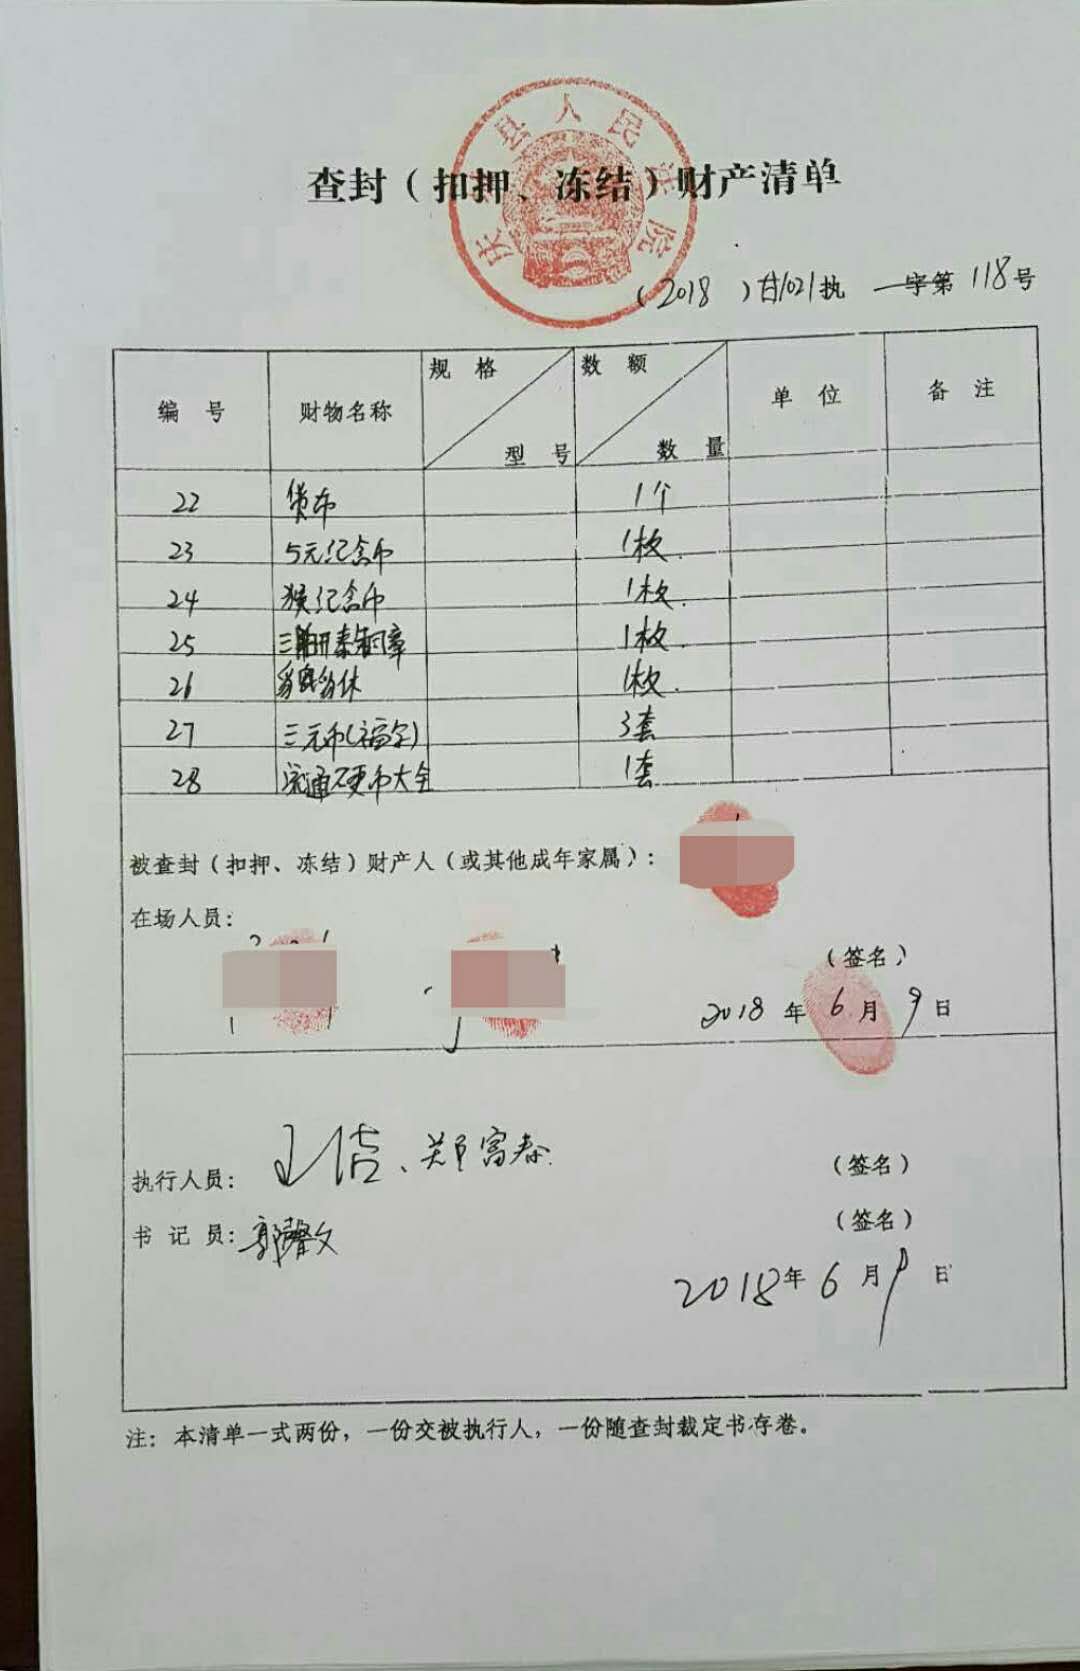 庆城县人民法院
查封（扣押、冻结）财产清单
（2018）甘1021执 字第118号
编号 财物名称 规格 型号 数额 数量 单位 备注
22 货币 1个
23 5元纪念币 1枚
24 猴纪念币 1枚
25 三羊开泰铜章 1枚
26 1枚
27 三元币(福字) 3套
28 流通硬币大全 1套
被查封（扣押、冻结）财产人（或其他成年家属）：
在场人员：
（签名）
2018年6月9日
执行人员： 、郑富春 （签名）
书记员：郭馨文 （签名）
2018年6月9日
注：本清单一式两份，一份交被执行人，一份随查封裁定书存卷。